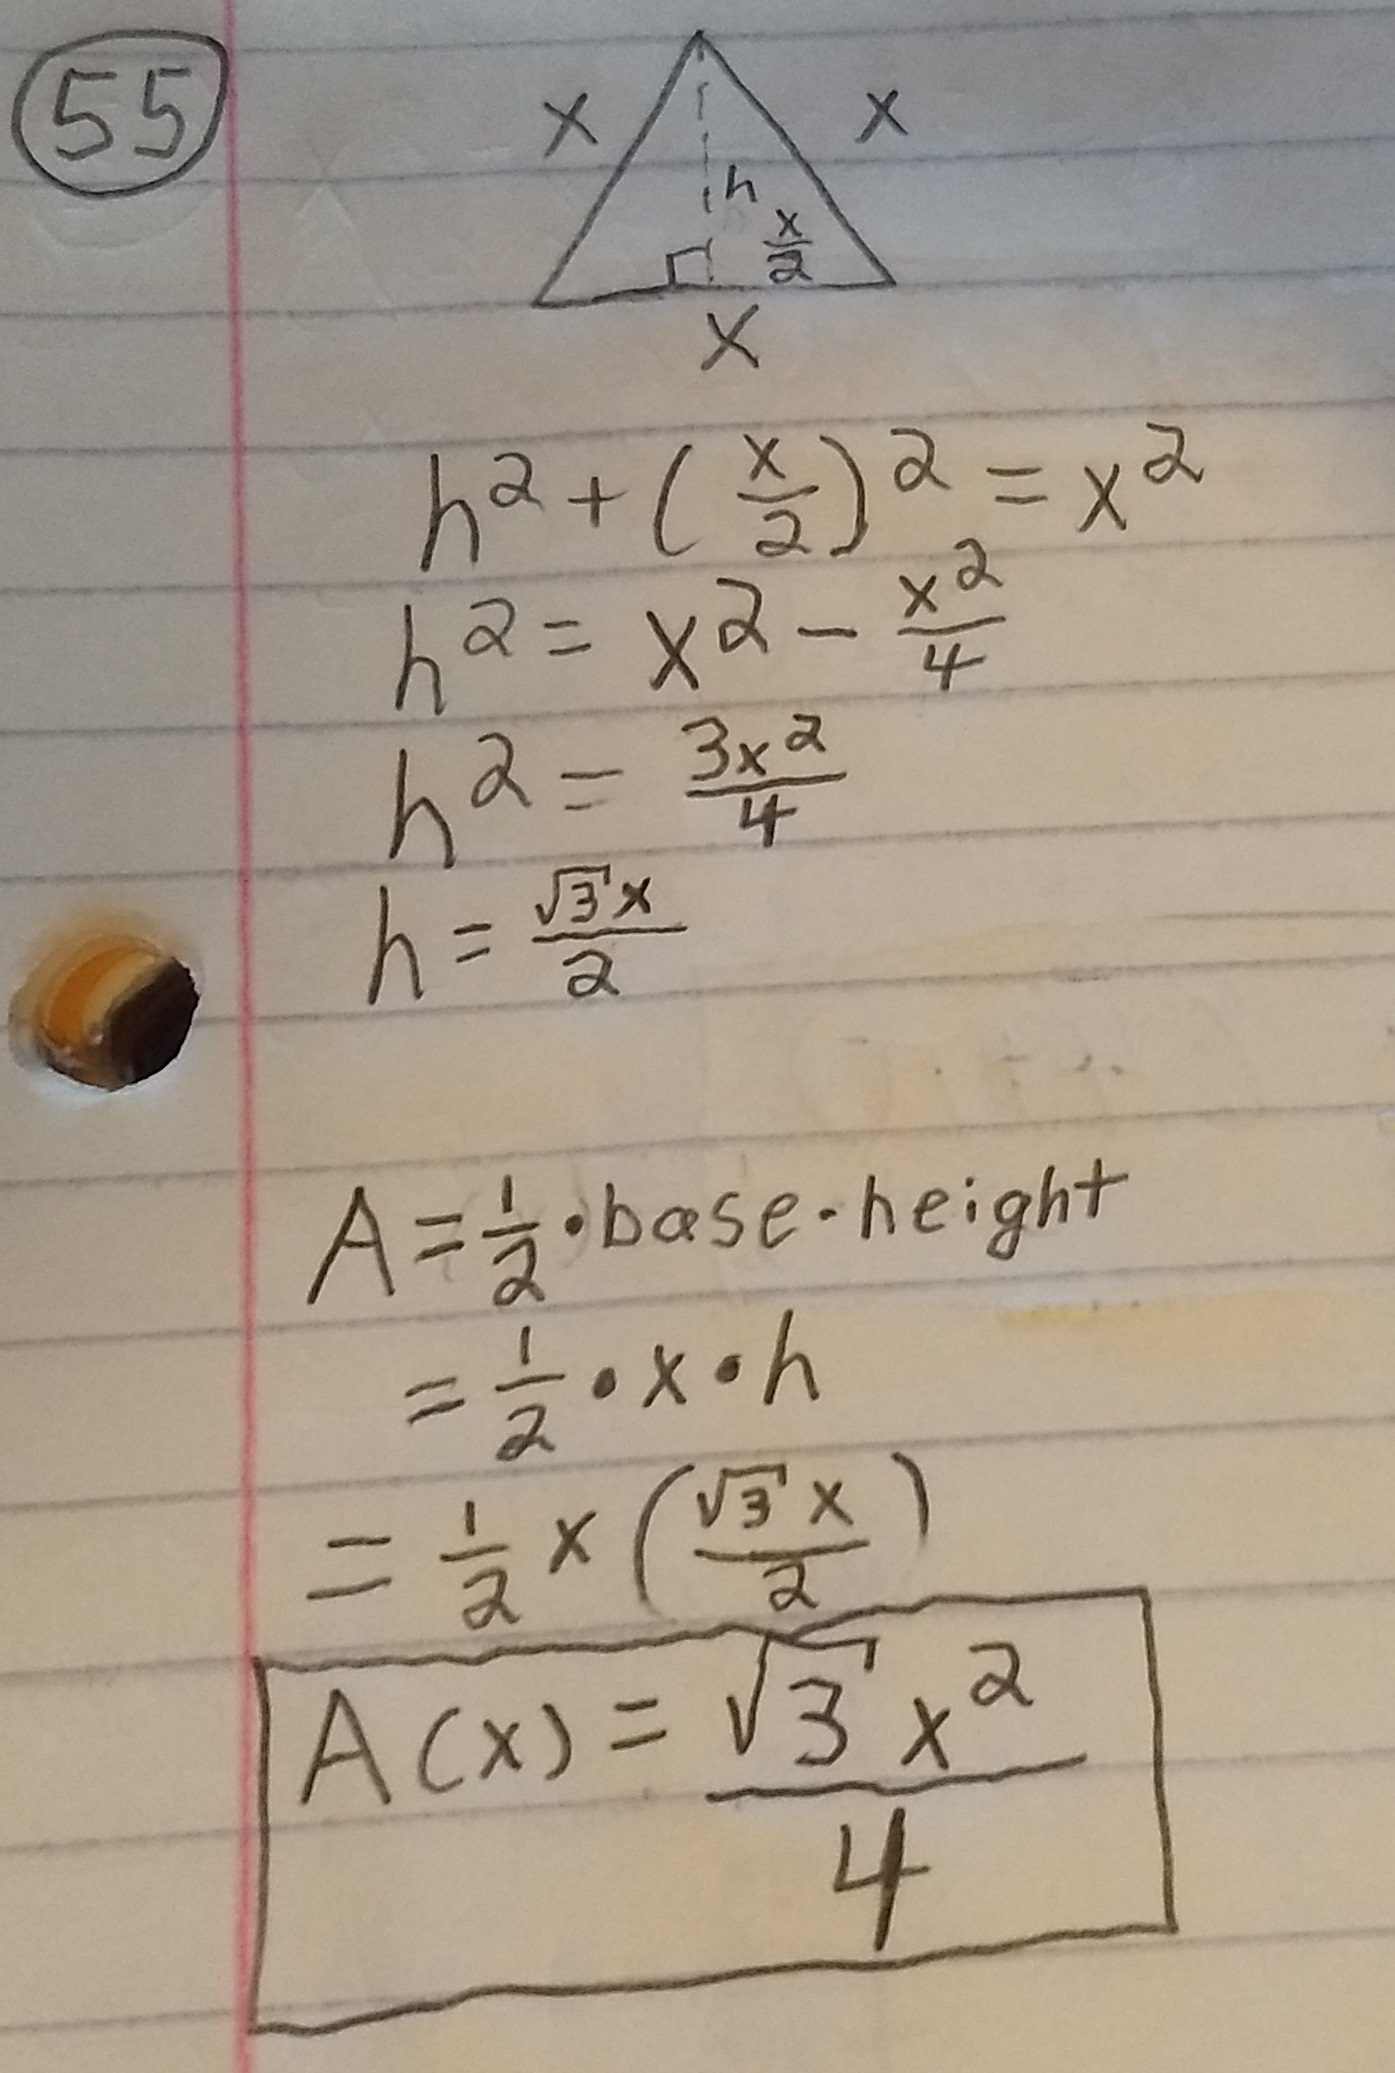 55
x x
h
x/2
x
h² + (x/2)² = x²
h² = x² - x²/4
h² = 3x²/4
h = √3 x/2
A = 1/2 · base · height
= 1/2 · x · h
= 1/2 x (√3 x/2)
A(x) = √3 x²/4